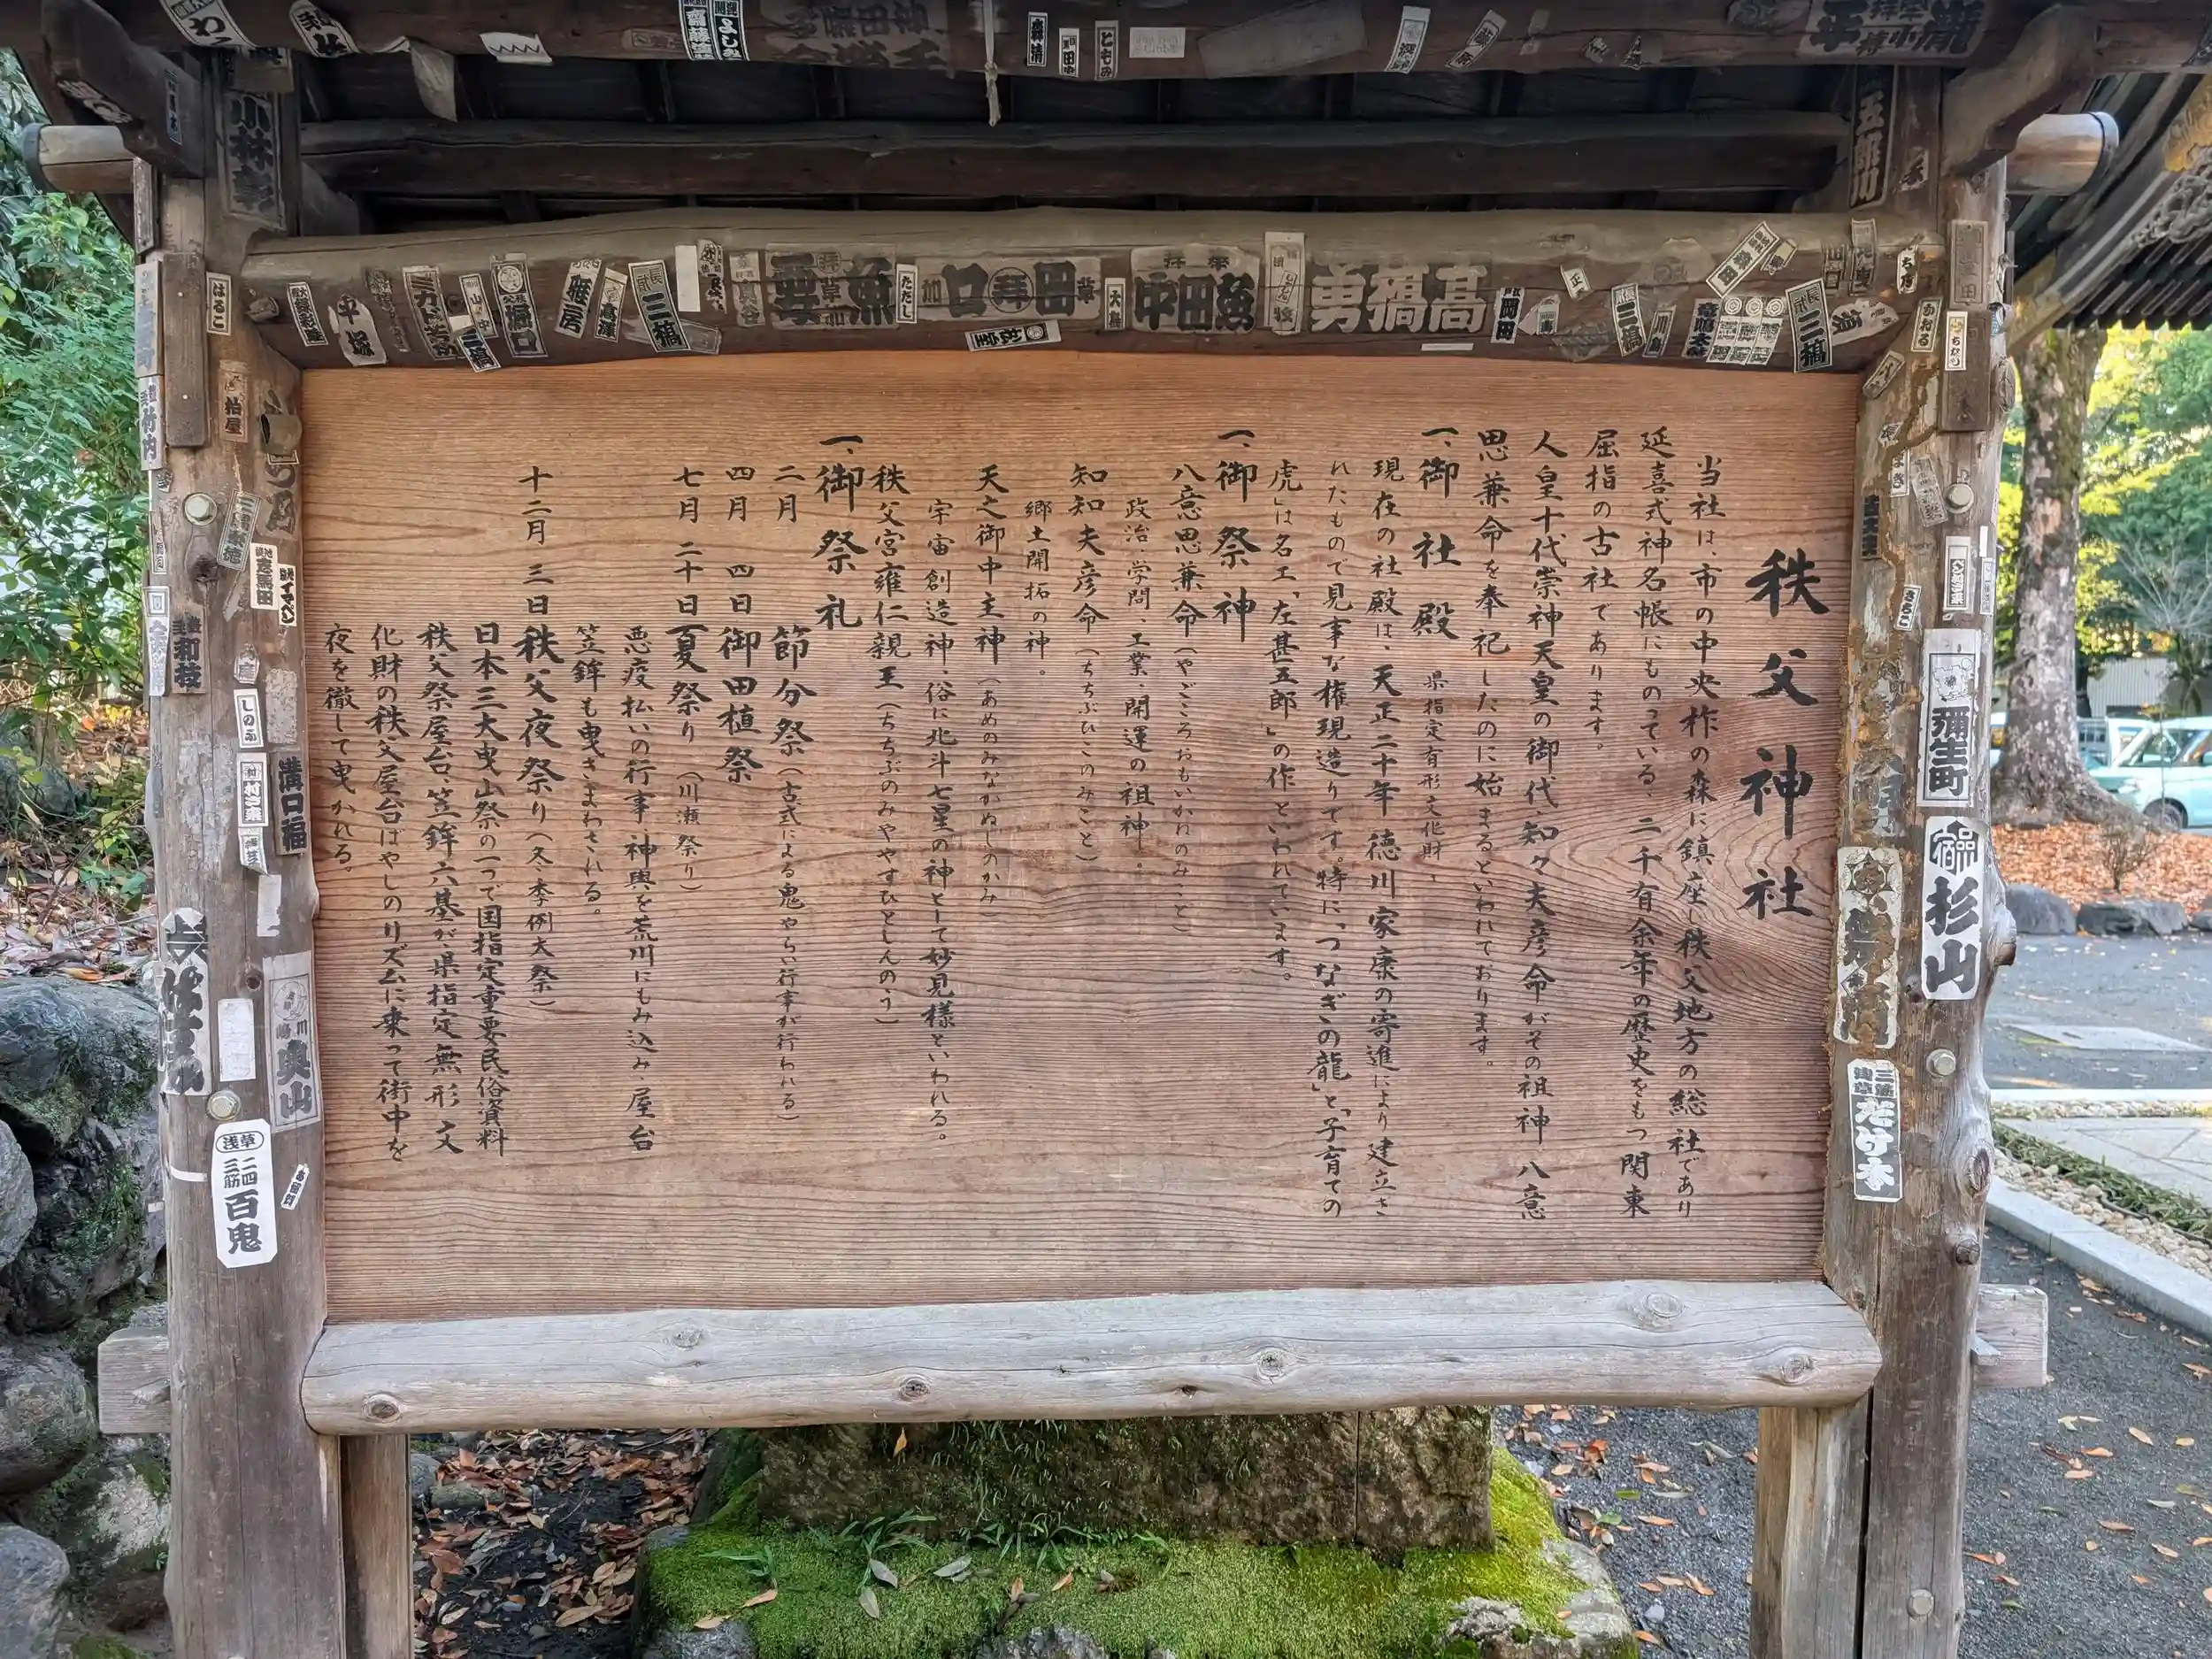 秩父神社
当社は、市の中央柞の森に鎮座し秩父地方の総社であり
延喜式神名帳にものっている、二千有余年の歴史をもつ関東
屈指の古社であります。
人皇十代崇神天皇の御代、知々夫彦命がその祖神 八意
思兼命を奉祀したのに始まるといわれております。
一、御社殿 県指定有形文化財、
現在の社殿は、天正二十年徳川家康の寄進により建立さ
れたもので見事な権現造りです。特に、「つなぎの龍」と、「子育ての
虎」は名工、「左甚五郎」の作といわれています。
一、御祭神
八意思兼命(やごころおもいかねのみこと)
政治、学問、工業、開運の祖神。
知知夫彦命(ちちぶひこのみこと)
郷土開拓の神。
天之御中主神(あめのみなかぬしのかみ)
宇宙創造神、俗に北斗七星の神として妙見様といわれる。
秩父宮雍仁親王(ちちぶのみややすひとしんのう)
一、御祭礼
二月 節分祭(古式による鬼やらい行事が行われる)
四月 四日 御田植祭
七月 二十日 夏祭り(川瀬祭り)
悪疫払いの行事 神輿を荒川にもみ込み、屋台
笠鉾も曳きまわされる。
十二月 三日 秩父夜祭り(冬季例大祭)
日本三大曳山祭の一つで国指定重要民俗資料
秩父祭屋台、笠鉾六基が、県指定無形文
化財の秩父屋台ばやしのリズムに乗って街中を
夜を徹して曳かれる。
高橋勇
三橋
三橋
三橋
岡田
堀口
平塚
雅房
ただし
大島
はるこ
小林彰
竹内
和枝
しのぶ
溝口福
奥山
浅草
三筋
二四
百鬼
彌生町
杉山
三筋
浅草
たけ本